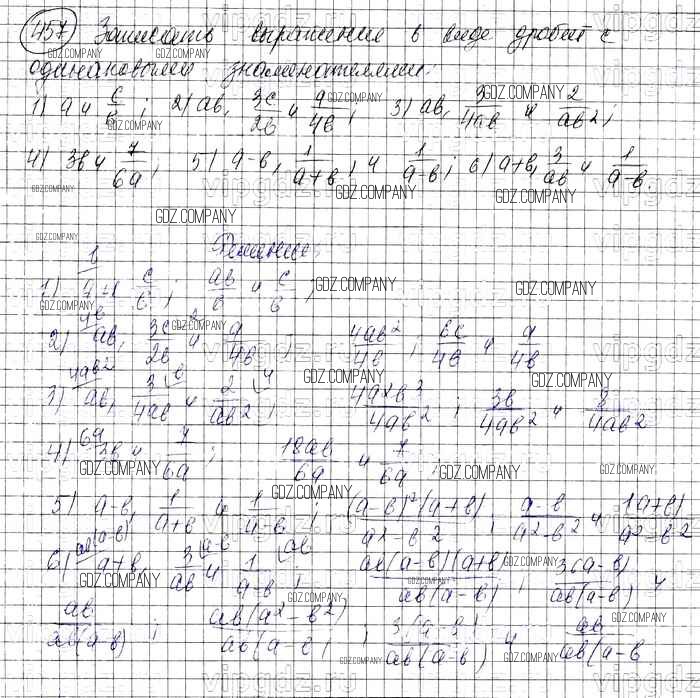 457 Записать выражение в виде дробей с
одинаковыми знаменателями:
1) a и c/b; 2) ab, 3c/2b и a/4b; 3) ab, 3/4ab и 2/ab²;
4) 3b и 7/6a; 5) a-b, 1/a+b, и 1/a-b; 6) a+b, 3/ab и 1/a-b.
Решение.
1) a и c/b; ab/b и c/b;
2) ab, 3c/2b и a/4b; 4ab²/4b; 6c/4b и a/4b
3) ab, 3/4ab и 2/ab²; 4a²b³/4ab²; 3b/4ab² и 8/4ab²
4) 3b и 7/6a; 18ab/6a и 7/6a;
5) a-b, 1/a+b и 1/a-b; (a-b)²(a+b)/a²-b²; a-b/a²-b² и 1a+b)/a²-b²
6) a+b, 3/ab и 1/a-b; ab(a-b)(a+b)/ab(a-b); 3(a-b)/ab(a-b) и
ab/ab(a-b); ab(a²-b²)/ab(a-b); 3(a-b)/ab(a-b) и ab/ab(a-b
GDZ.COMPANY
vipgdz.ru